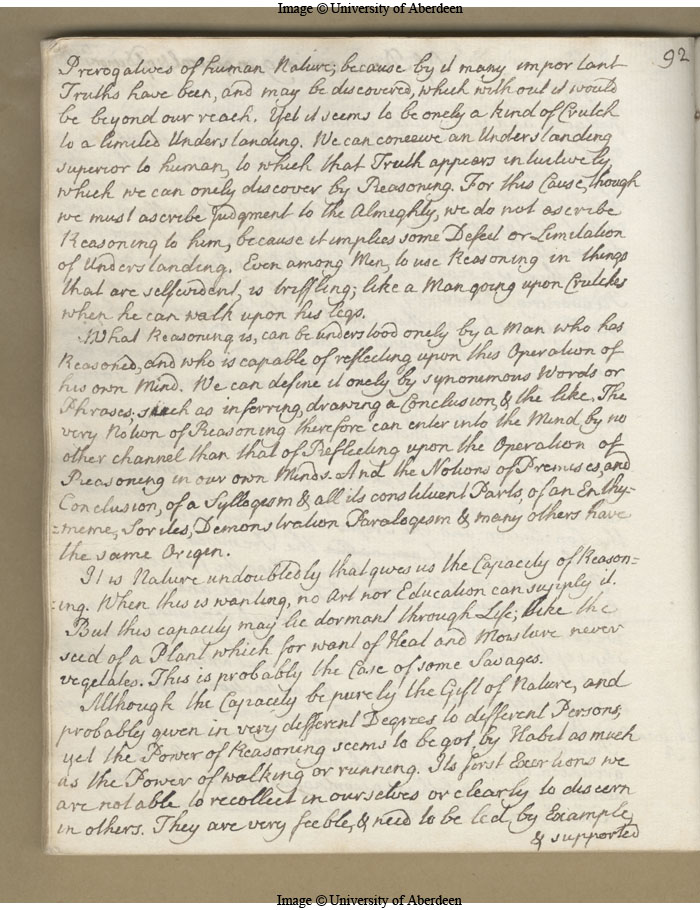 Image © University of Aberdeen
92
Prerogatives of human Nature; because by it many important
Truths have been, and may be discovered, which without it would
be beyond our reach. Yet it seems to be onely a kind of Crutch
to a limited Understanding. We can conceive an Understanding
superior to human, to which that Truth appears intuitively,
which we can onely discover by Reasoning. For this Cause, though
we must ascribe Judgment to the Almighty, we do not ascribe
Reasoning to him, because it implies some Defect or Limitation
of Understanding. Even among Men, to use Reasoning in things
that are selfevident, is triffling; like a Man going upon Crutches
when he can walk upon his legs.
What Reasoning is, can be understood onely by a Man who has
Reasoned, and who is capable of reflecting upon this Operation of
his own Mind. We can define it onely by synonimous Words or
Phrases, such as inferring, drawing a Conclusion, & the like. The
very Notion of Reasoning therefore can enter into the Mind by no
other channel than that of Reflecting upon the Operation of
Reasoning in our own Minds. And the Notions of Premises, and
Conclusion, of a Syllogism & all its constituent Parts, of an Enthy-
=meme, Sorites, Demonstration Paralogism & many others have
the same Origin.
It is Nature undoubtedly that gives us the Capacity of Reason=
:ing. When this is wanting, no Art nor Education can supply it.
But this capacity may lie dormant through Life; like the
seed of a Plant which for want of Heat and Moisture never
vegetates. This is probably the Case of some Savages.
Although the Capacity be purely the Gift of Nature, and
probably given in very different Degrees to different Persons;
yet the Power of Reasoning seems to be got by Habit as much
as the Power of walking or running. Its first Exertions we
are not able to recollect in ourselves or clearly to discern
in others. They are very feeble, & need to be led by Example,
& supported
Image © University of Aberdeen